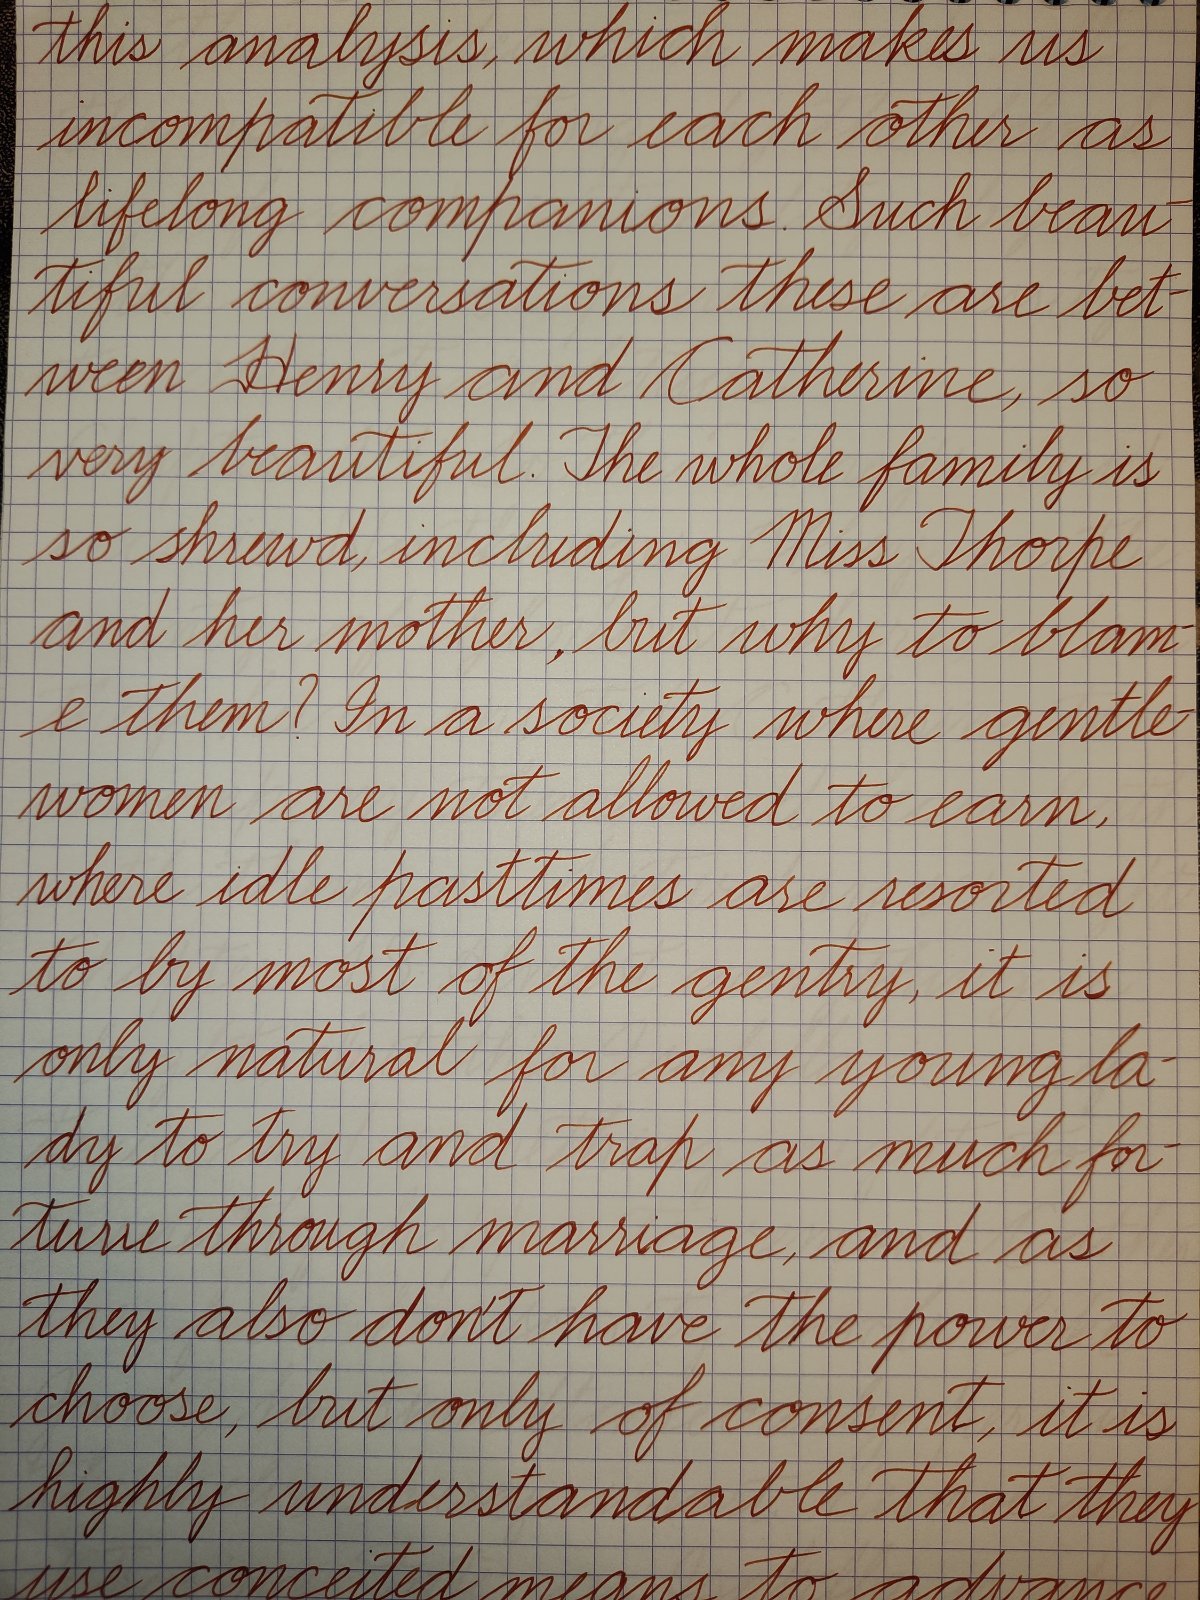 this analysis, which makes us
incompatible for each other as
lifelong companions. Such beau-
tiful conversations these are bet-
ween Henry and Catherine, so
very beautiful. The whole family is
so shrewd, including Miss Thorpe
and her mother, but why to blam-
e them? In a society where gentle-
women are not allowed to earn,
where idle pasttimes are resorted
to by most of the gentry, it is
only natural for any young la-
dy to try and trap as much for-
tune through marriage, and as
they also don't have the power to
choose, but only of consent, it is
highly understandable that they
use conceited means to advance